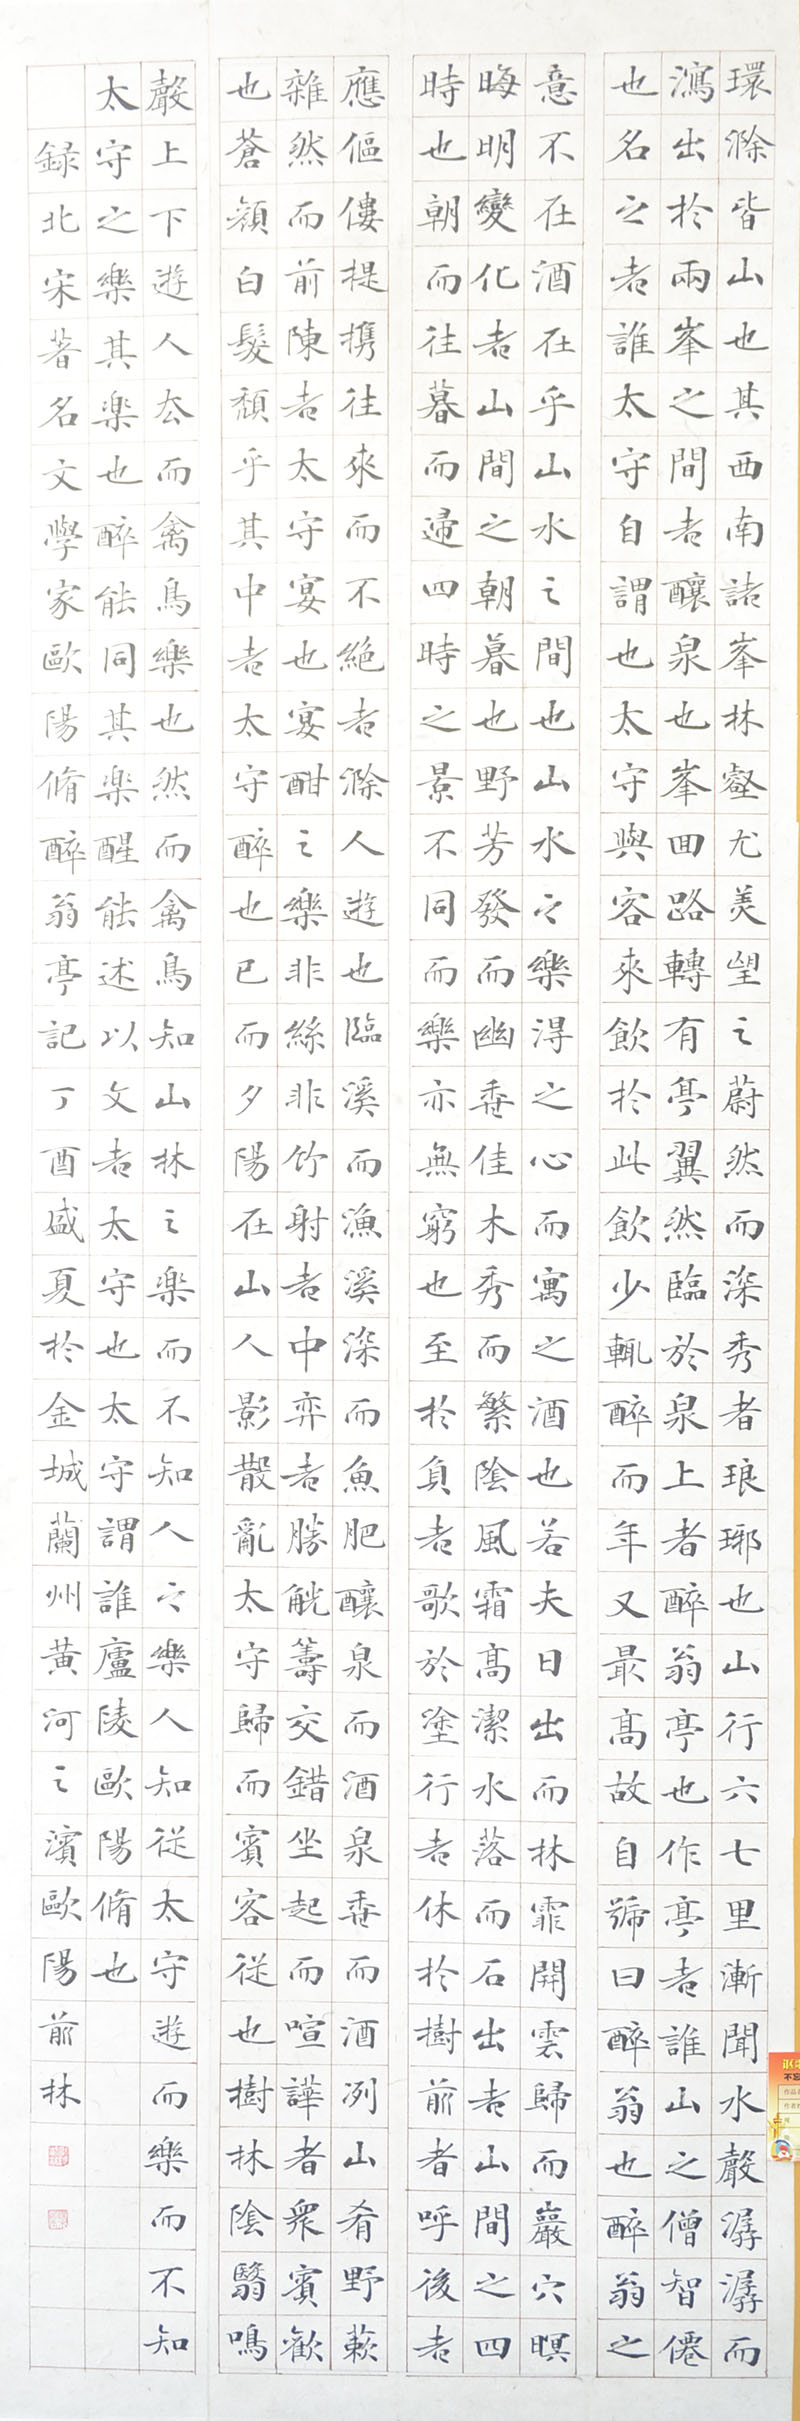 環滁皆山也其西南諸峯林壑尤美望之蔚然而深秀者琅琊也山行六七里漸聞水聲潺潺而
瀉出於兩峯之間者釀泉也峯回路轉有亭翼然臨於泉上者醉翁亭也作亭者誰山之僧智僊
也名之者誰太守自謂也太守與客來飲於此飲少輒醉而年又最高故自號曰醉翁也醉翁之
意不在酒在乎山水之間也山水之樂得之心而寓之酒也若夫日出而林霏開雲歸而巖穴暝
晦明變化者山間之朝暮也野芳發而幽香佳木秀而繁陰風霜高潔水落而石出者山間之四
時也朝而往暮而歸四時之景不同而樂亦無窮也至於負者歌於塗行者休於樹前者呼後者
應傴僂提携往來而不絕者滁人遊也臨溪而漁溪深而魚肥釀泉而酒泉香而酒冽山肴野蔌
雜然而前陳者太守宴也宴酣之樂非絲非竹射者中弈者勝觥籌交錯坐起而喧譁者眾賓歡
也蒼顏白髮頹乎其中者太守醉也已而夕陽在山人影散亂太守歸而賓客從也樹林陰翳鳴
聲上下遊人去而禽鳥樂也然而禽鳥知山林之樂而不知人之樂人知從太守遊而樂而不知
太守之樂其樂也醉能同其樂醒能述以文者太守也太守謂誰廬陵歐陽脩也
録北宋著名文學家歐陽脩醉翁亭記丁酉盛夏於金城蘭州黃河之濱歐陽前林
不忘